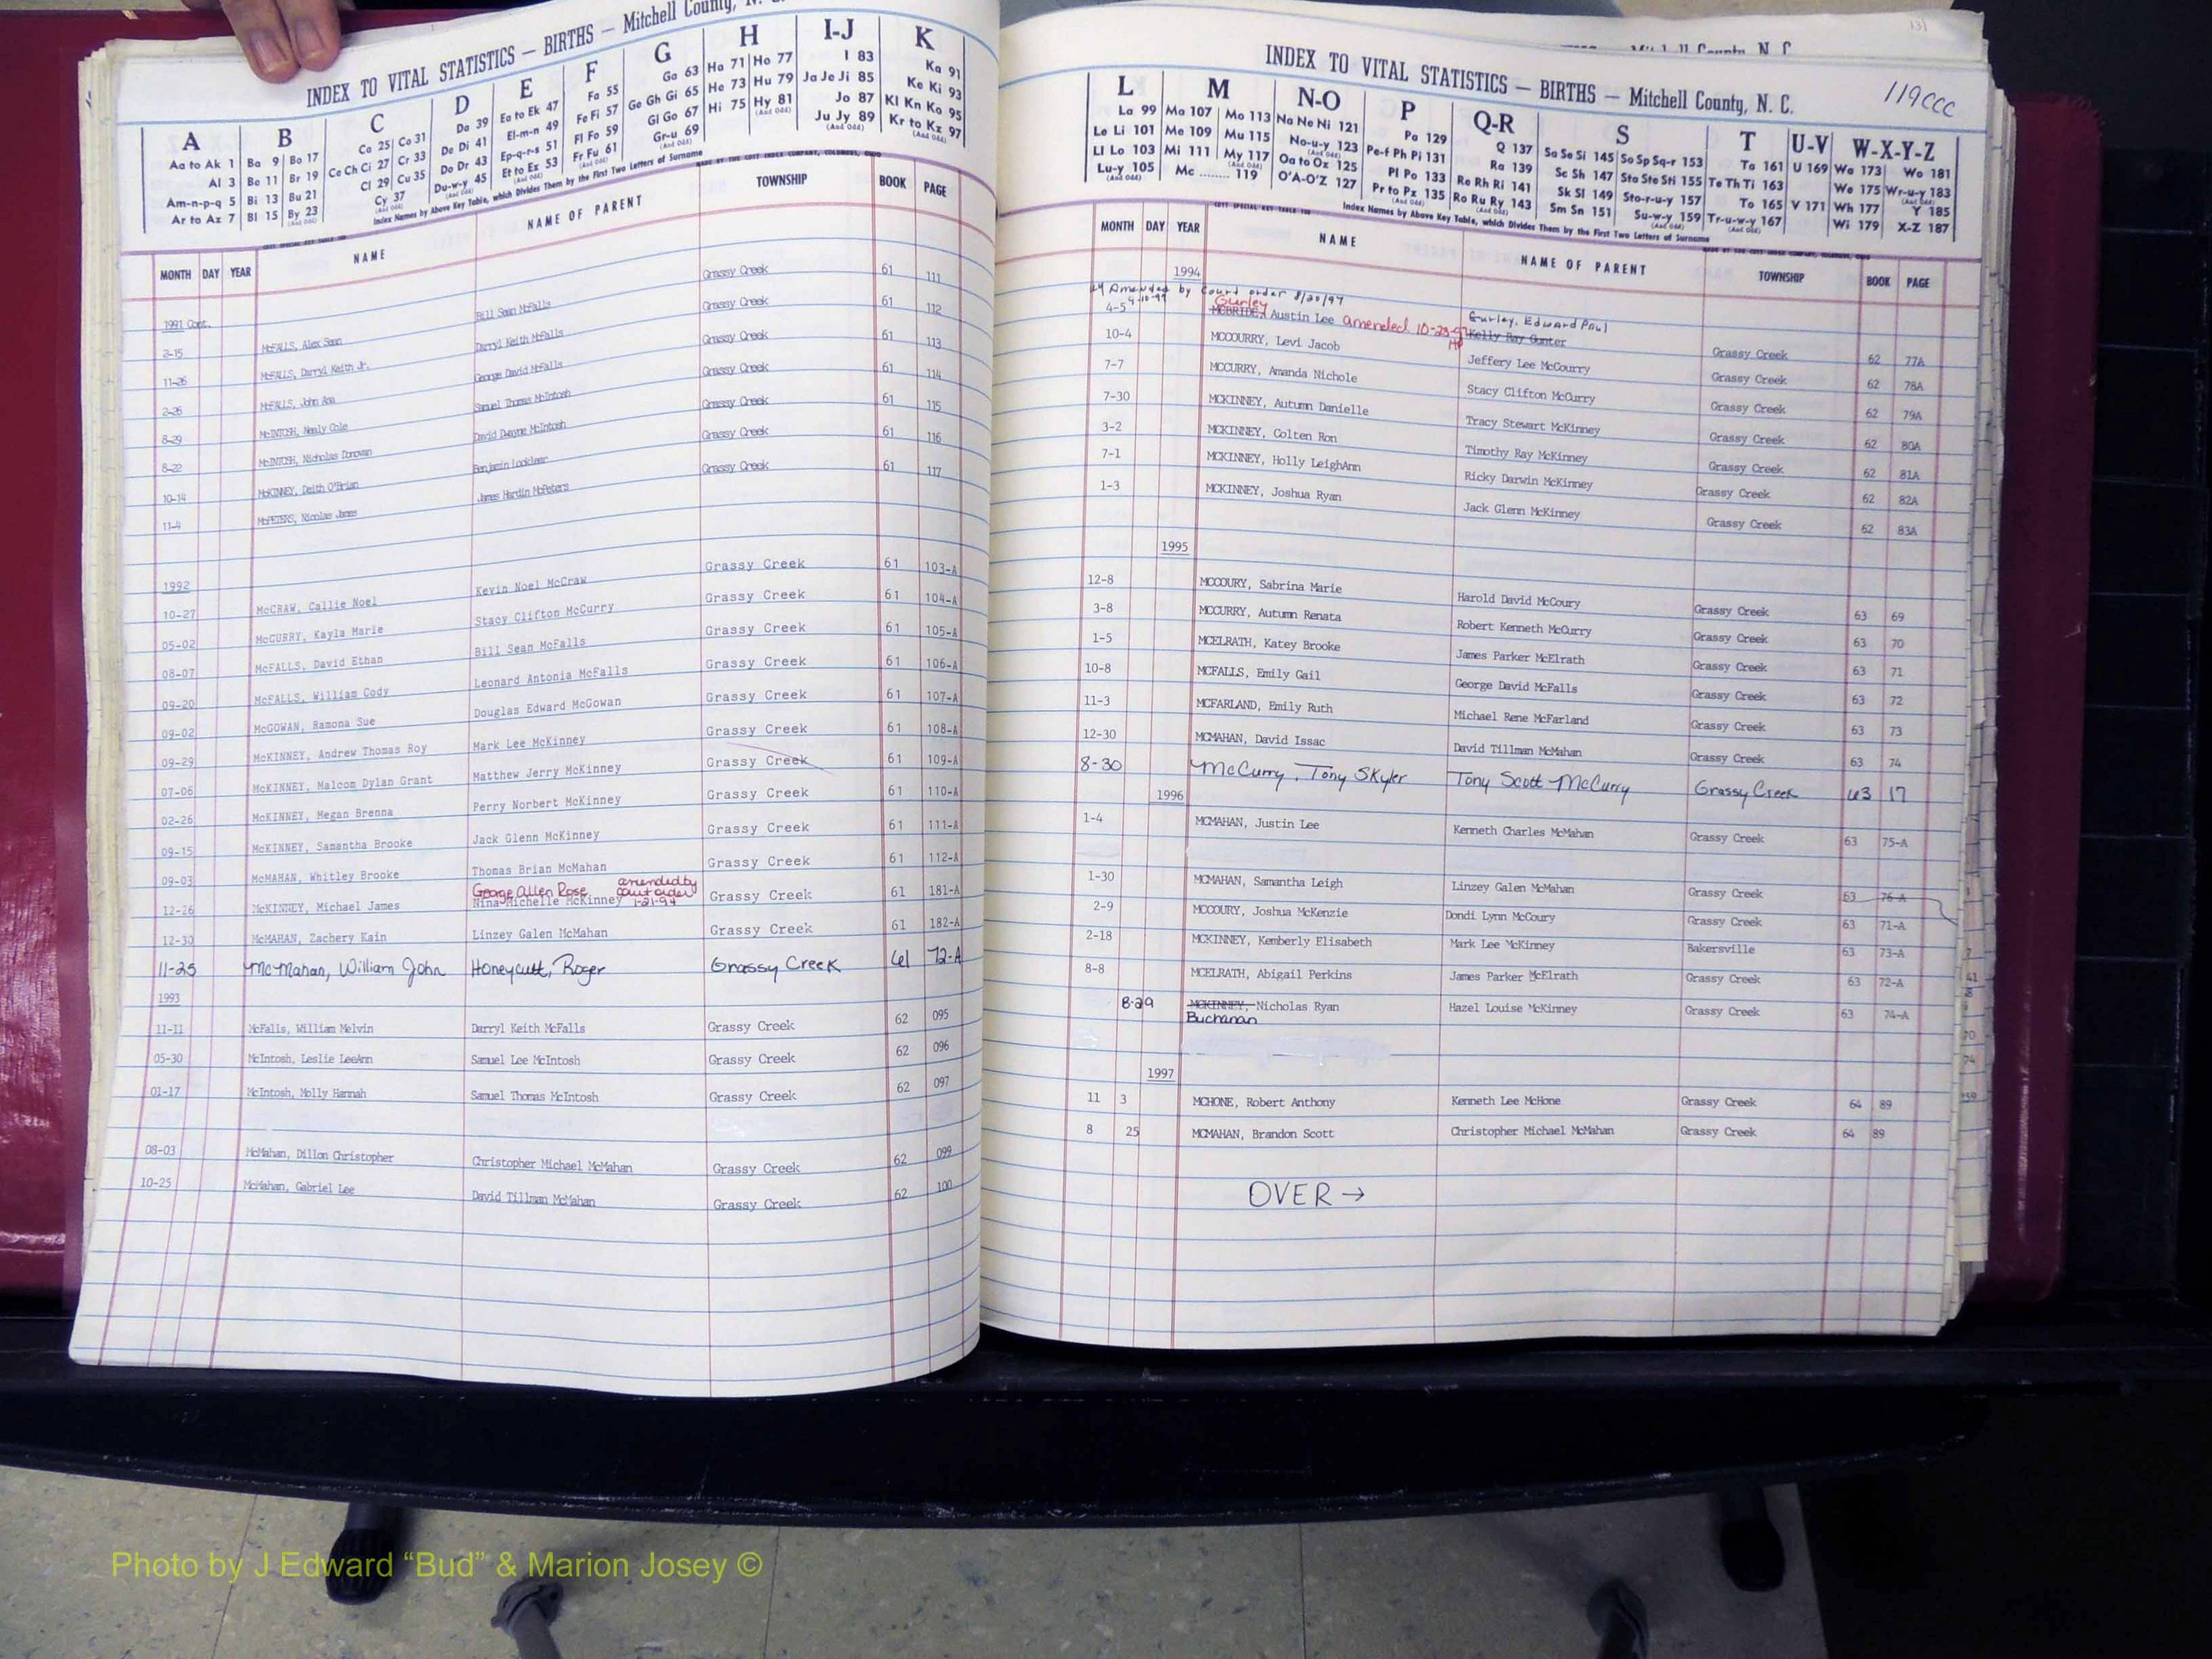 INDEX TO VITAL STATISTICS — BIRTHS — Mitchell County, N. C.
A B C D E F G H I-J K
Aa to Ak 1 Ba 9 Bo 17 Ca 25 Co 31 Da 39 Ea to Ek 47 Fa 55 Ga 63 Ha 71 Ho 77 I 83 Ka 91
Al 3 Be 11 Br 19 Ce Ch Ci 27 Cr 33 De Di 41 El-m-n 49 Fe Fi 57 Ge Gh Gi 65 He 73 Hu 79 Ja Je Ji 85 Ke Ki 93
Am-n-p-q 5 Bi 13 Bu 21 Cl 29 Cu 35 Do Dr 43 Ep-q-r-s 51 Fl Fo 59 Gl Go 67 Hi 75 Hy 81 Jo 87 Kl Kn Ko 95
Ar to Az 7 Bl 15 By 23 Cy 37 Du-w-y 45 Et to Ex 53 Fr Fu 61 Gr-u 69 Ju Jy 89 Kr to Kz 97
Index Names by Above Key Table, which Divides Them by the First Two Letters of Surname
MONTH DAY YEAR NAME NAME OF PARENT TOWNSHIP BOOK PAGE
1991 Cont.
2-15 McFALLS, Alex Sean Bill Sean McFalls Grassy Creek 61 111
11-26 McFALLS, Darryl Keith Jr. Darryl Keith McFalls Grassy Creek 61 112
2-26 McFALLS, John Asa George David McFalls Grassy Creek 61 113
8-29 McINTOSH, Nealy Cole Samuel Thomas McIntosh Grassy Creek 61 114
8-22 McINTOSH, Nicholas Donovan David Dwayne McIntosh Grassy Creek 61 115
10-14 McKINNEY, Deith O'Brian Benjamin Locklear Grassy Creek 61 116
11-4 McPETERS, Nicolas James James Hardin McPeters Grassy Creek 61 117
1992
10-27 McCRAW, Callie Noel Kevin Noel McCraw Grassy Creek 61 103-A
05-02 McCURRY, Kayla Marie Stacy Clifton McCurry Grassy Creek 61 104-A
08-07 McFALLS, David Ethan Bill Sean McFalls Grassy Creek 61 105-A
09-20 McFALLS, William Cody Leonard Antonia McFalls Grassy Creek 61 106-A
09-02 McGOWAN, Ramona Sue Douglas Edward McGowan Grassy Creek 61 107-A
09-29 McKINNEY, Andrew Thomas Roy Mark Lee McKinney Grassy Creek 61 108-A
07-06 McKINNEY, Malcom Dylan Grant Matthew Jerry McKinney Grassy Creek 61 109-A
02-26 McKINNEY, Megan Brenna Perry Norbert McKinney Grassy Creek 61 110-A
09-15 McKINNEY, Samantha Brooke Jack Glenn McKinney Grassy Creek 61 111-A
09-03 McMAHAN, Whitley Brooke Thomas Brian McMahan Grassy Creek 61 112-A
George Allen Rose amended by court order 1-21-94
12-26 McKINNEY, Michael James Nina Michelle McKinney Grassy Creek 61 181-A
12-30 McMAHAN, Zachery Kain Linzey Galen McMahan Grassy Creek 61 182-A
11-25 McMahan, William John Honeycutt, Roger Grassy Creek 61 72-A
1993
11-11 McFalls, William Melvin Darryl Keith McFalls Grassy Creek 62 095
05-30 McIntosh, Leslie LeeAnn Samuel Lee McIntosh Grassy Creek 62 096
01-17 McIntosh, Molly Hannah Samuel Thomas McIntosh Grassy Creek 62 097
08-03 McMahan, Dillon Christopher Christopher Michael McMahan Grassy Creek 62 099
10-25 McMahan, Gabriel Lee David Tillman McMahan Grassy Creek 62 100
131
Mitchell County, N. C.
INDEX TO VITAL STATISTICS — BIRTHS — Mitchell County, N. C.
119CCC
L M N-O P Q-R S T U-V W-X-Y-Z
La 99 Ma 107 Mo 113 Na Ne Ni 121 Pa 129 Q 137 Sa Se Si 145 So Sp Sq-r 153 Ta 161 U 169 Wa 173 Wo 181
Le Li 101 Me 109 Mu 115 No-u-y 123 Pe-f Ph Pi 131 Ra 139 Sc Sh 147 Sta Ste Sti 155 Te Th Ti 163 We 175 Wr-u-y 183
Ll Lo 103 Mi 111 My 117 Oa to Oz 125 Pl Po 133 Re Rh Ri 141 Sk Sl 149 Sto-r-u-y 157 To 165 V 171 Wh 177 Y 185
Lu-y 105 Mc ........ 119 O'A-O'Z 127 Pr to Pz 135 Ro Ru Ry 143 Sm Sn 151 Su-w-y 159 Tr-u-w-y 167 Wi 179 X-Z 187
Index Names by Above Key Table, which Divides Them by the First Two Letters of Surname
MONTH DAY YEAR NAME NAME OF PARENT TOWNSHIP BOOK PAGE
1994
Amended by Court order 8/20/97
Gurley Gurley, Edward Paul
4-5 MCBRIDE, Austin Lee amended 10-23-97 Kelly Ray Gunter Grassy Creek 62 77A
10-4 MCCOURRY, Levi Jacob Jeffery Lee McCourry Grassy Creek 62 78A
7-7 MCCURRY, Amanda Nichole Stacy Clifton McCurry Grassy Creek 62 79A
7-30 MCKINNEY, Autumn Danielle Tracy Stewart McKinney Grassy Creek 62 80A
3-2 MCKINNEY, Colten Ron Timothy Ray McKinney Grassy Creek 62 81A
7-1 MCKINNEY, Holly LeighAnn Ricky Darwin McKinney Grassy Creek 62 82A
1-3 MCKINNEY, Joshua Ryan Jack Glenn McKinney Grassy Creek 62 83A
1995
12-8 MCCOURY, Sabrina Marie Harold David McCoury Grassy Creek 63 69
3-8 MCCURRY, Autumn Renata Robert Kenneth McCurry Grassy Creek 63 70
1-5 MCELRATH, Katey Brooke James Parker McElrath Grassy Creek 63 71
10-8 MCFALLS, Emily Gail George David McFalls Grassy Creek 63 72
11-3 MCFARLAND, Emily Ruth Michael Rene McFarland Grassy Creek 63 73
12-30 MCMAHAN, David Issac David Tillman McMahan Grassy Creek 63 74
8-30 McCurry, Tony Skyler Tony Scott McCurry Grassy Creek 63 17
1996
1-4 MCMAHAN, Justin Lee Kenneth Charles McMahan Grassy Creek 63 75-A
1-30 MCMAHAN, Samantha Leigh Linzey Galen McMahan Grassy Creek 63 76-A
2-9 MCCOURY, Joshua McKenzie Dondi Lynn McCoury Grassy Creek 63 71-A
2-18 MCKINNEY, Kemberly Elisabeth Mark Lee McKinney Bakersville 63 73-A
8-8 MCELRATH, Abigail Perkins James Parker McElrath Grassy Creek 63 72-A
8-29 MCKINNEY, Nicholas Ryan Hazel Louise McKinney Grassy Creek 63 74-A
Buchanan
1997
11 3 MCHONE, Robert Anthony Kenneth Lee McHone Grassy Creek 64 89
8 25 MCMAHAN, Brandon Scott Christopher Michael McMahan Grassy Creek 64 89
OVER →
Photo by J Edward “Bud” & Marion Josey ©